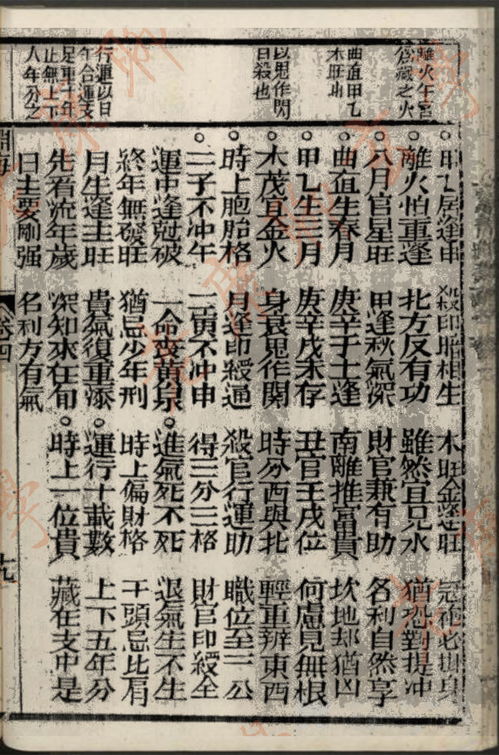 離火午宮
為藏之火
曲直甲乙
木旺也
以鬼作関
日殺也
行運以日
年合運支
足重十年
止無上下
人年分之
○甲乙居逢申 殺印暗相生 木旺金逢旺 冠袍必掛身
○離火怕重逢 北方反有功 雖然宜見水 猶恐對提冲
○八月官星旺 甲逢秋氣深 財官兼有助 名利自然享
○曲直生春月 庚辛干上逢 南離推富貴 坎地却猶凶
○甲乙生三月 庚辛戌未存 丑宮壬戌位 何慮見無根
○木茂宜金火 身衰鬼作関 時分西與北 輕重辨東西
○時上胞胎格 月逢印綬通 殺官行運助 職位至三公
○二子不冲午 二寅不冲申 得三分三格 財官印綬全
運中逢剋破 一命喪黃泉○進氣死不死 退氣生不生
終年無發旺 猶忌少年刑 時上偏財格 干頭忌比肩
月生逢主旺 貴氣復重添○運行十載數 上下五年分
先看流年歲 深知來往旬○時上一位貴 藏在支中是
日主要剛强 名利方有氣
淵海
卷四
十九